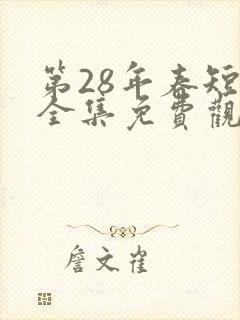 第28年春短
全集免費觀
詹文雀